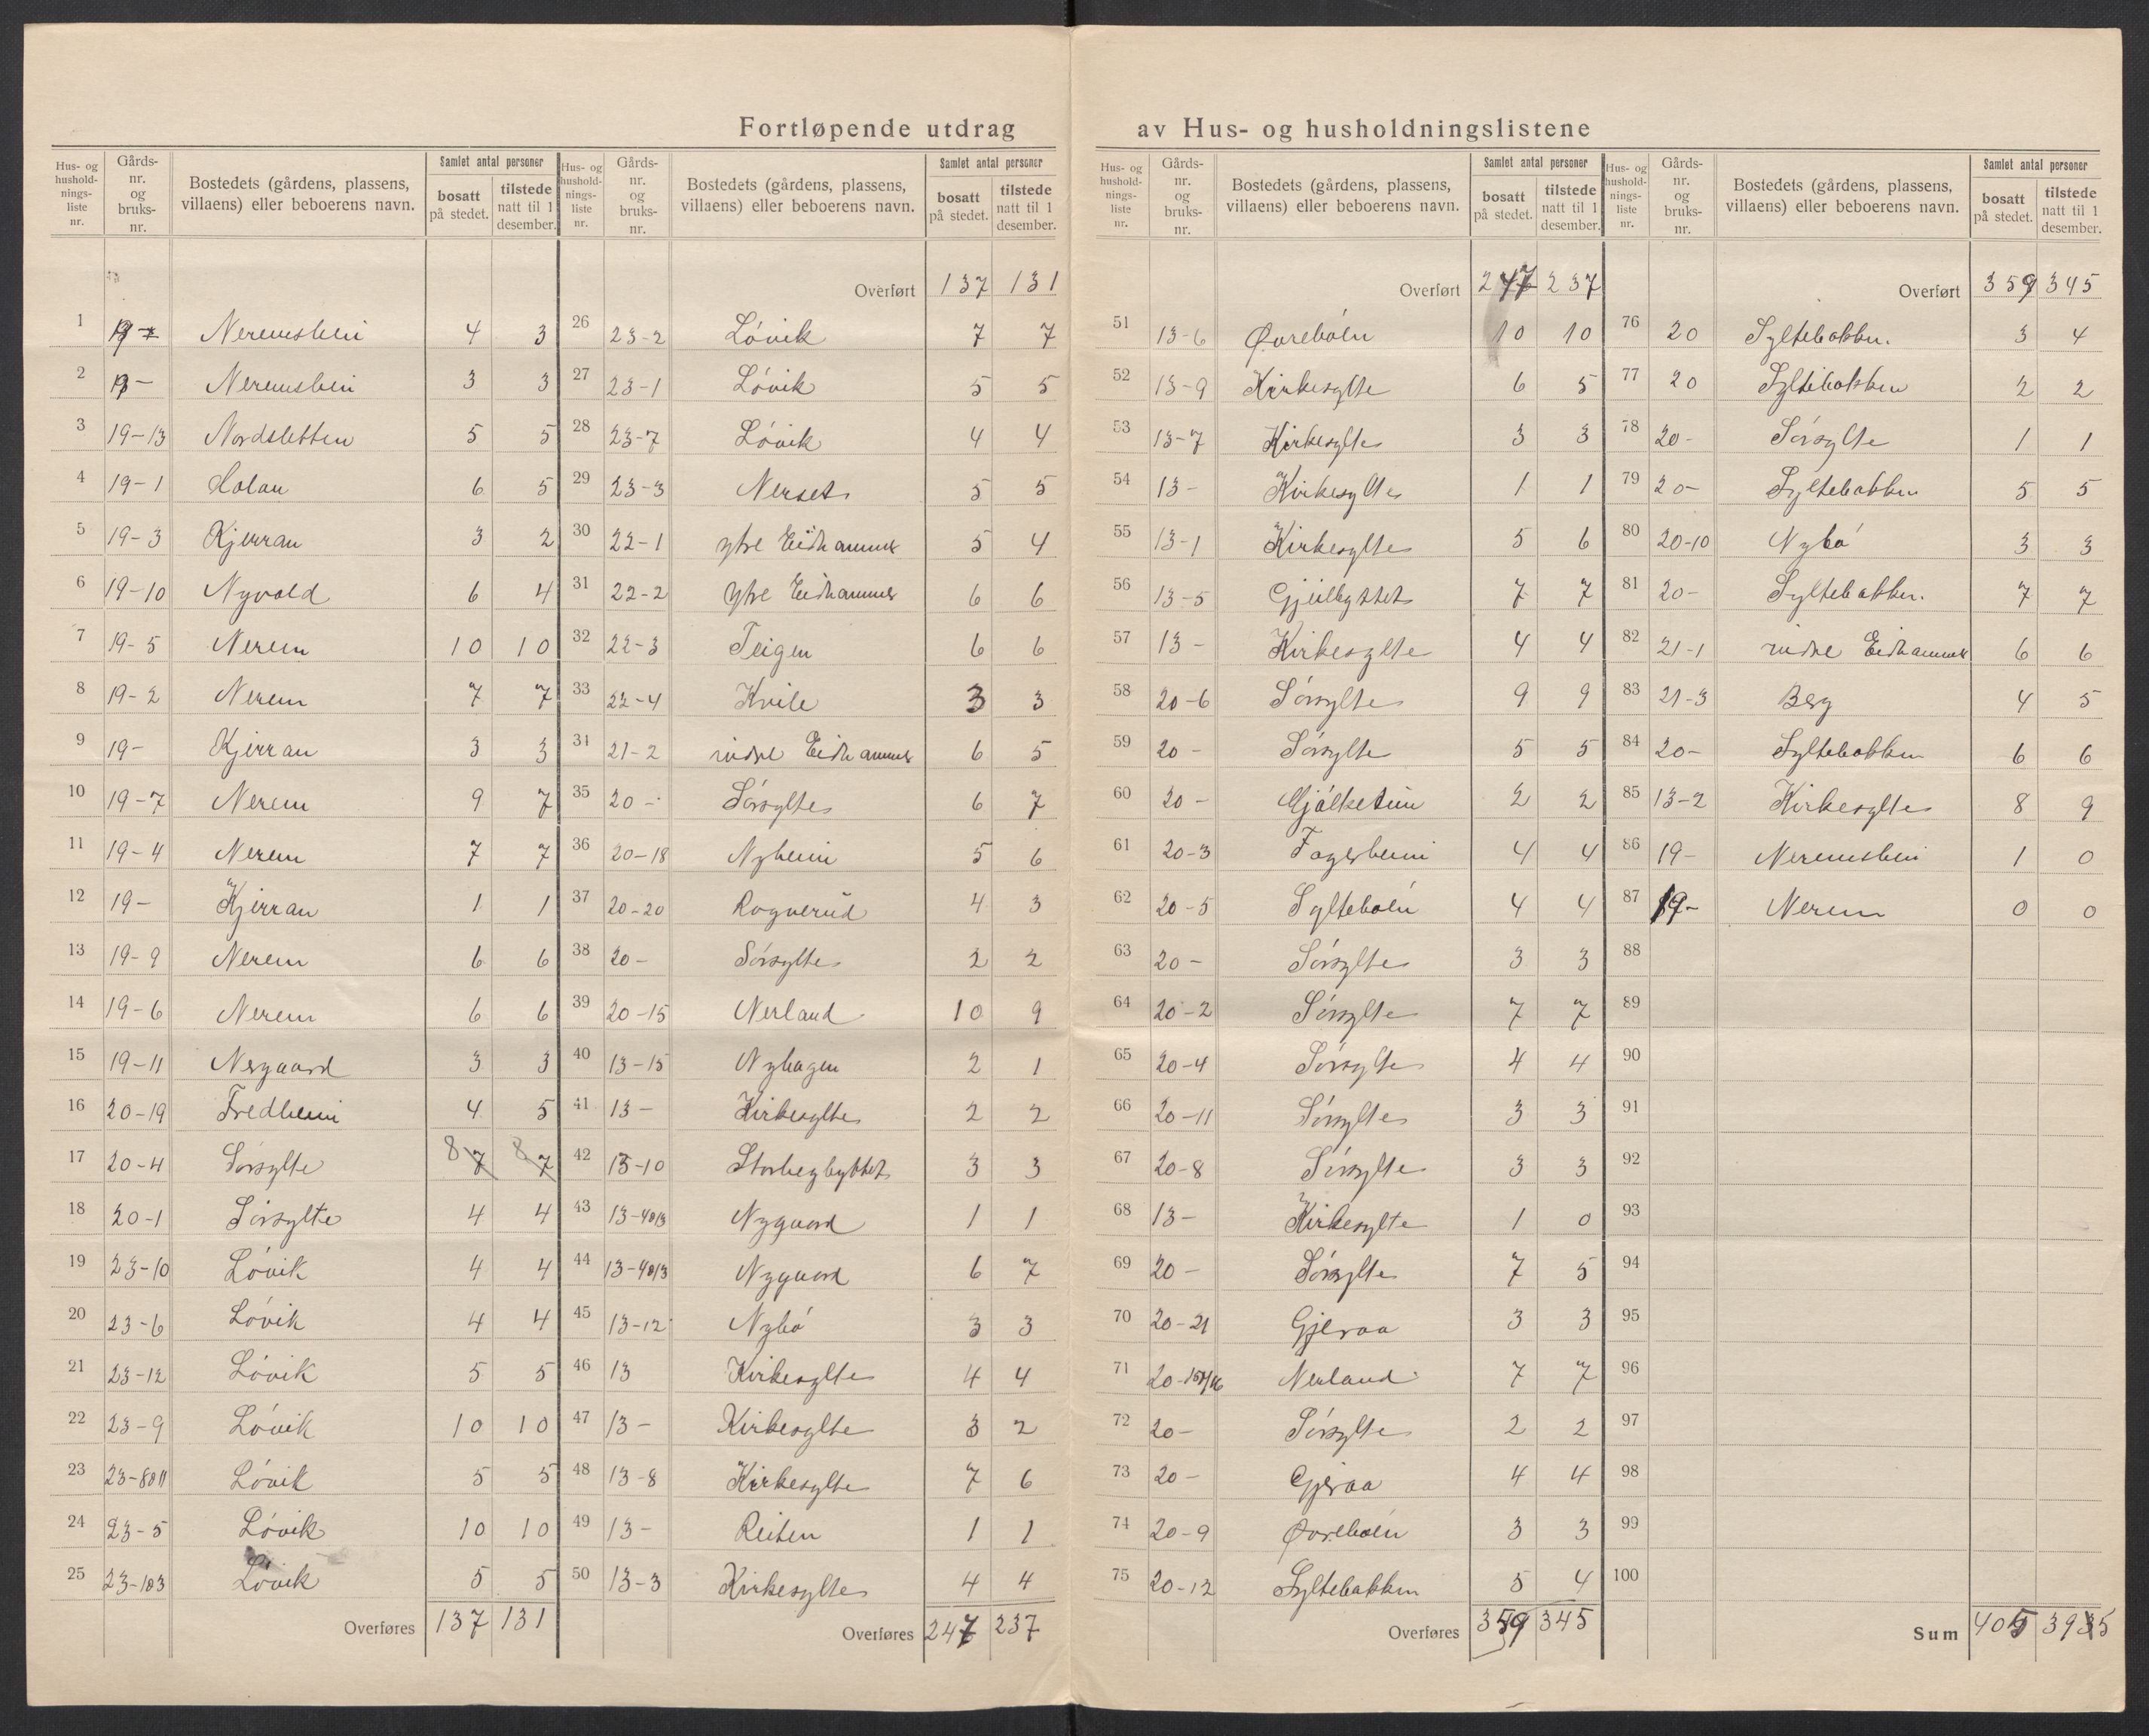 Fortløpende utdrag av Hus- og husholdningslistene
Hus- og hushold-nings-liste nr. | Gårds-nr. og bruks-nr. | Bostedets (gårdens, plassens, villaens) eller beboerens navn. | Samlet antal personer: bosatt på stedet. | tilstede natt til 1 desember.
1 Neremsheim 4 3
2 Neremsheim 3 3
3 19-13 Nordsletten 5 5
4 19-1 Holan 6 5
5 19-3 Kjerran 3 2
6 19-10 Nyvold 6 4
7 19-5 Nerem 10 10
8 19-2 Nerem 7 7
9 19- Kjerran 3 3
10 19-7 Nerem 9 7
11 19-4 Nerem 7 7
12 19- Kjerran 1 1
13 19-9 Nerem 6 6
14 19-6 Nerem 6 6
15 19-11 Nergaard 3 3
16 20-19 Fredheim 4 5
17 20-4 Sørsylte 8 7 8 7
18 20-1 Sørsylte 4 4
19 23-10 Løvik 4 4
20 23-6 Løvik 4 4
21 23-12 Løvik 5 5
22 23-9 Løvik 10 10
23 23-8011 Løvik 5 5
24 23-5 Løvik 10 10
25 Løvik 5 5
Overføres 137 131
Hus- og hushold-nings-liste nr. | Gårds-nr. og bruks-nr. | Bostedets (gårdens, plassens, villaens) eller beboerens navn. | Samlet antal personer: bosatt på stedet. | tilstede natt til 1 desember.
Overført 137 131
26 23-2 Løvik 7 7
27 23-1 Løvik 5 5
28 23-7 Løvik 4 4
29 23-3 Nerset 5 5
30 22-1 ytre Eidhammer 5 4
31 22-2 Ytre Eidhammer 6 6
32 22-3 Teigen 6 6
33 22-4 Kvile 3 3
34 21-2 indre Eidhammer 6 5
35 20- Sørsylte 6 7
36 20-18 Nyheim 5 6
37 20-20 Rognerud 4 3
38 20- Sørsylte 2 2
39 20-15 Nerland 10 9
40 13-15 Nyhagen 2 1
41 13- Kirkesylte 2 2
42 13-10 3 3
43 13-4013 Nygaard 1 1
44 13-4013 Nygaard 6 7
45 13-12 Nybø 3 3
46 13 Kirkesylte 4 4
47 13- Kirkesylte 3 2
48 13-8 Kirkesylte 7 6
49 13- Reiten 1 1
50 13-3 Kirkesylte 4 4
Overføres 247 237
Hus- og hushold-nings-liste nr. | Gårds-nr. og bruks-nr. | Bostedets (gårdens, plassens, villaens) eller beboerens navn. | Samlet antal personer: bosatt på stedet. | tilstede natt til 1 desember.
Overført 247 237
51 13-6 Øvrebøen 10 10
52 13-9 Kirkesylte 6 5
53 13-7 Kirkesylte 3 3
54 13- Kirkesylte 1 1
55 13-1 Kirkesylte 5 6
56 13-5 7 7
57 13- Kirkesylte 4 4
58 20-6 Sørsylte 9 9
59 20- Sørsylte 5 5
60 20- Mjølketun 2 2
61 20-3 Fagerheim 4 4
62 20-5 Syltebøen 4 4
63 20- Sørsylte 3 3
64 20-2 Sørsylte 7 7
65 20-4 Sørsylte 4 4
66 20-11 Sørsylte 3 3
67 20-8 Sørsylte 3 3
68 13- Kirkesylte 1 0
69 20- Sørsylte 7 5
70 20-21 Gjeraa 3 3
71 Nerland 7 7
72 20- Sørsylte 2 2
73 20- Gjeraa 4 4
74 20-9 Øvrebøen 3 3
75 20-12 Syltebakken 5 4
Overføres 359 345
Hus- og hushold-nings-liste nr. | Gårds-nr. og bruks-nr. | Bostedets (gårdens, plassens, villaens) eller beboerens navn. | Samlet antal personer: bosatt på stedet. | tilstede natt til 1 desember.
Overført 359 345
76 20 Syltebakken. 3 4
77 20 Syltebakken 2 2
78 20- Sørsylte 1 1
79 20- Syltebakken 5 5
80 20-10 Nybø 3 3
81 20- Syltebakken. 7 7
82 21-1 indre Eidhammer 6 6
83 21-3 Berg 4 5
84 20- Syltebakken 6 6
85 13-2 Kirkesylte 8 9
86 19- Neremsheim 1 0
87 19- Nerem 0 0
88
89
90
91
92
93
94
95
96
97
98
99
100
Sum 405 395